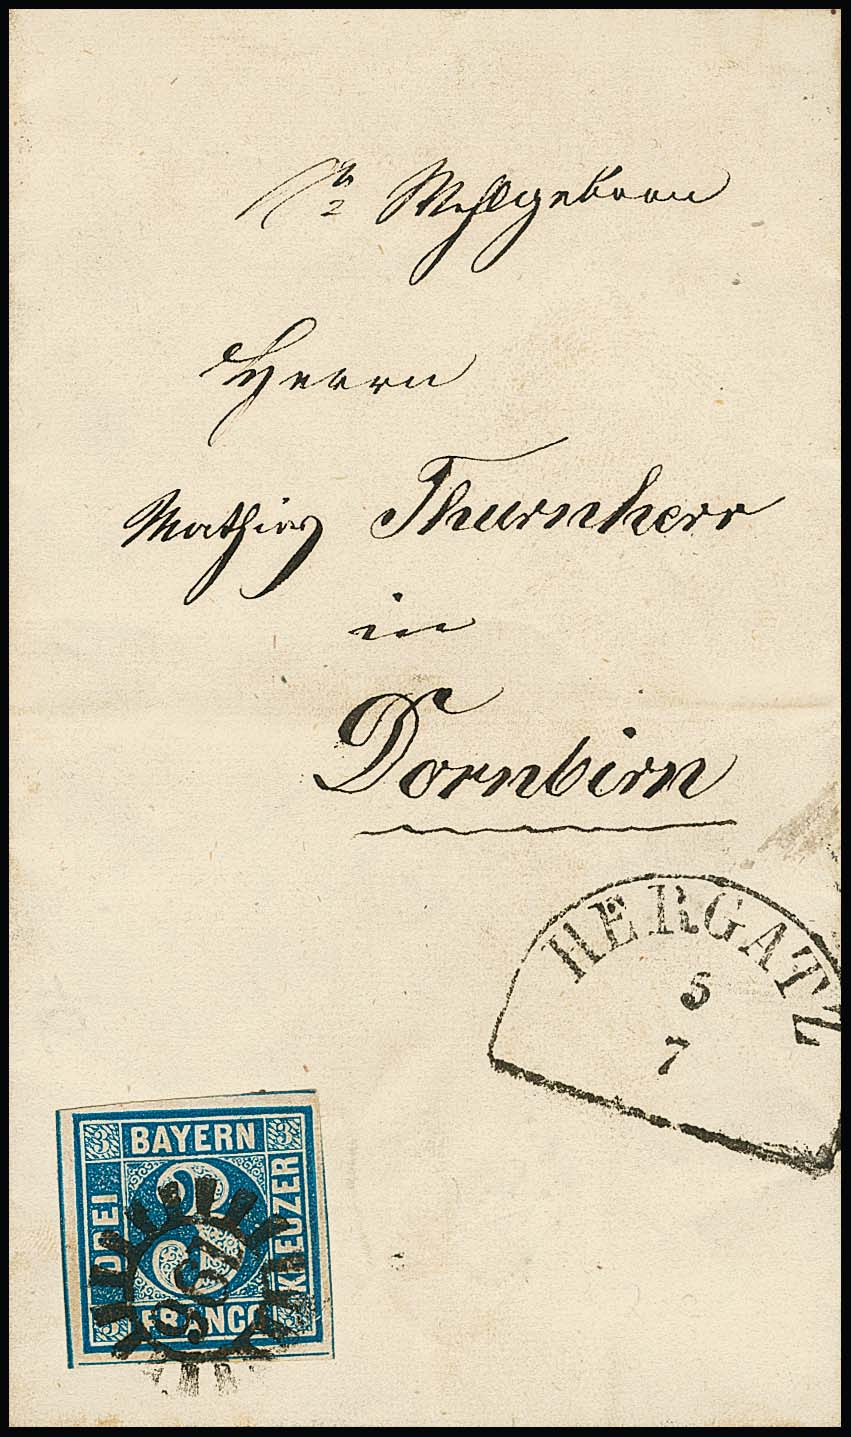 Sr Wohlgeborn
Herrn
Mathias Thurnherr
in
Dornbirn
HERGATZ
5
7
3 BAYERN 3
DREI
3
KREUZER
3 FRANCO 3
196